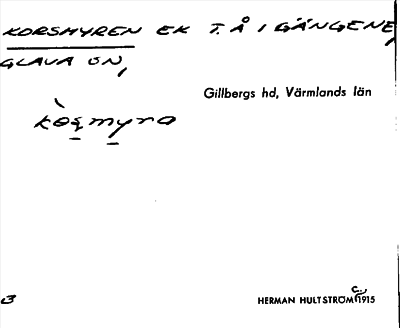 KORSMYREN EK T. Å I GÄNGENE,
GLAVA SN,
Gillbergs hd, Värmlands län
kòs̱my̱ra
3
HERMAN HULTSTRÖM C., 1915